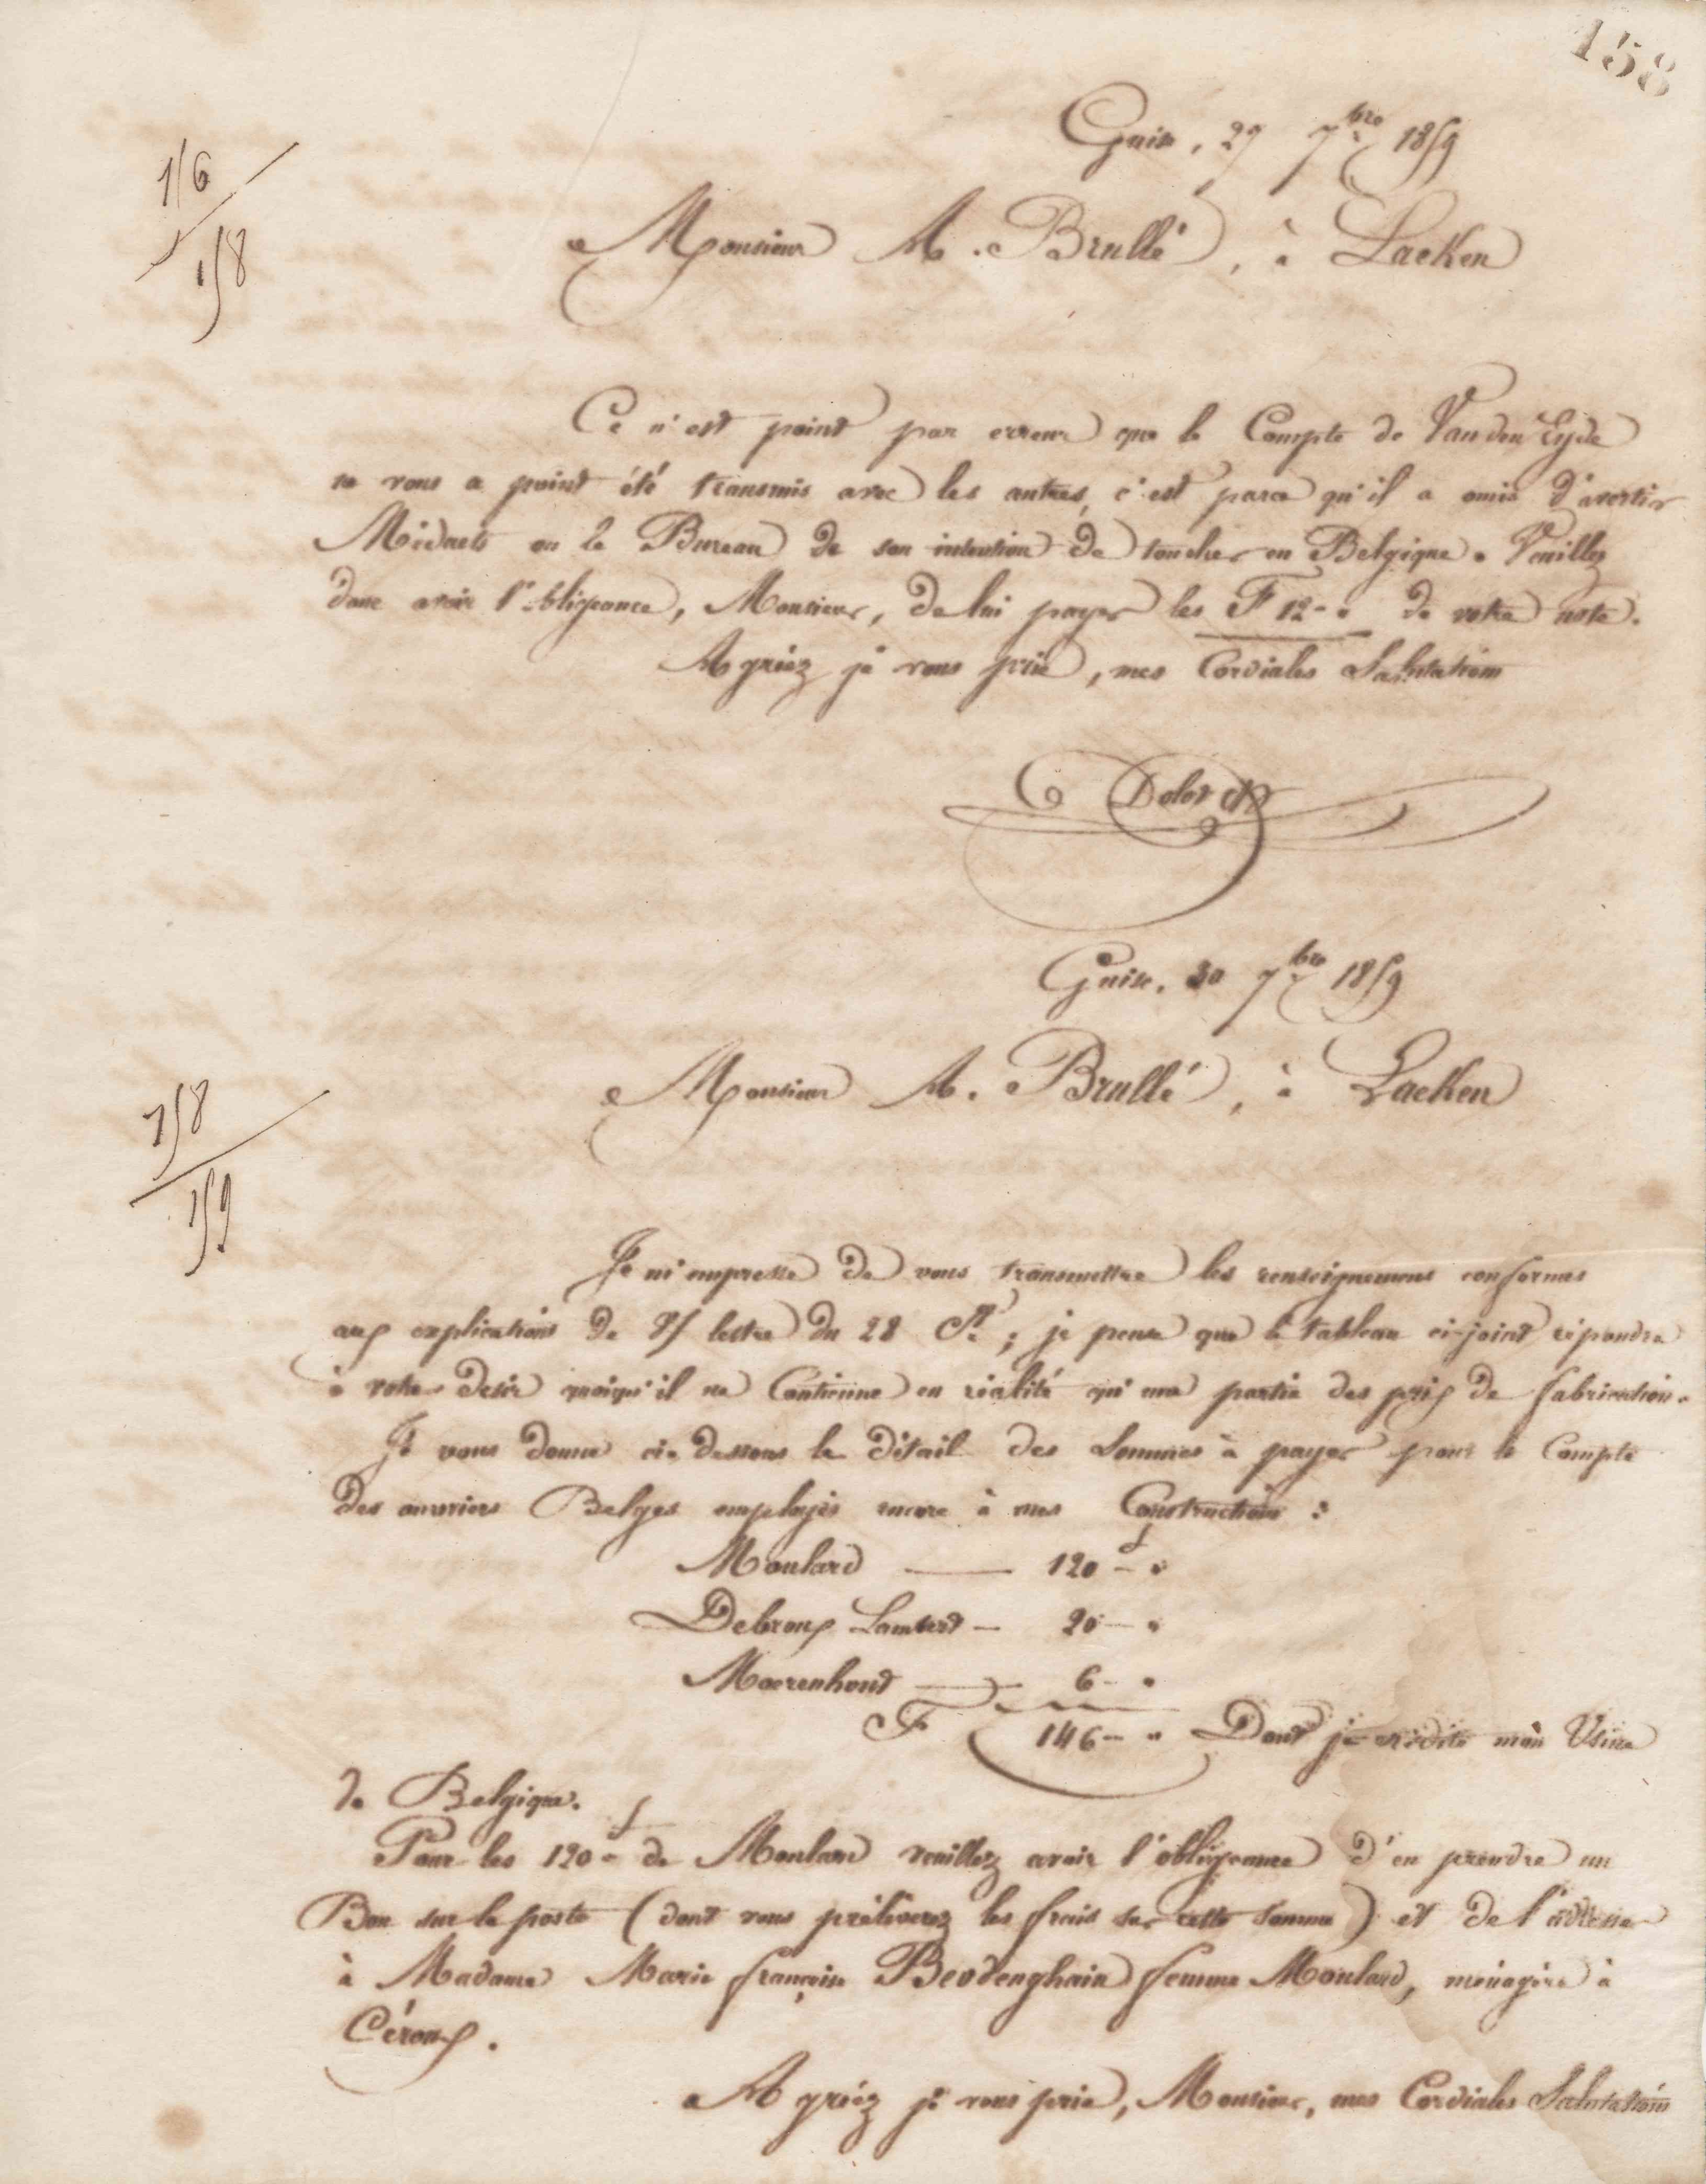 158
Guise, 29 7bre 1859
156
158
Monsieur A. Brullé, à Laeken
Ce n'est point par erreur que le Compte de Vanden Eyde
ne vous a point été transmis avec les autres, c'est parce qu'il a omis d'avertir
ou le Bureau de son intention de toucher en Belgique. Veuillez
donc avoir l'obligeance, Monsieur, de lui payer les F 12-" de votre note.
Agréez je vous prie, mes Cordiales Salutations
Guise, 30 7bre 1859
Monsieur A. Brullé, à Laeken
158
159
Je m'empresse de vous transmettre les renseignemens conformes
aux explications de V/ lettre du 28 Ct; je pense que le tableau ci-joint répondra
à votre desir quoiqu'il ne Contienne en réalité qu'une partie des prix de fabrication.
Je vous donne ci-dessous le détail des Sommes à payer pour le Compte
des ouvriers Belges employés encore à mes Constructions :
Moulard — 120f-"
Debroux Lambert — 20-"
Moerenhout — 6-"
F 146-" Dont je crédite mon Usine
de Belgique.
Pour les 120f de Moulard veuillez avoir l'obligeance d'en prendre un
Bon sur la poste (dont vous prélèverez les frais sur cette Somme) et de l'adresser
à Madame Marie françoise Beodenghain femme Moulard, ménagère à
Céroux.
Agréez je vous prie, Monsieur, mes Cordiales Salutations